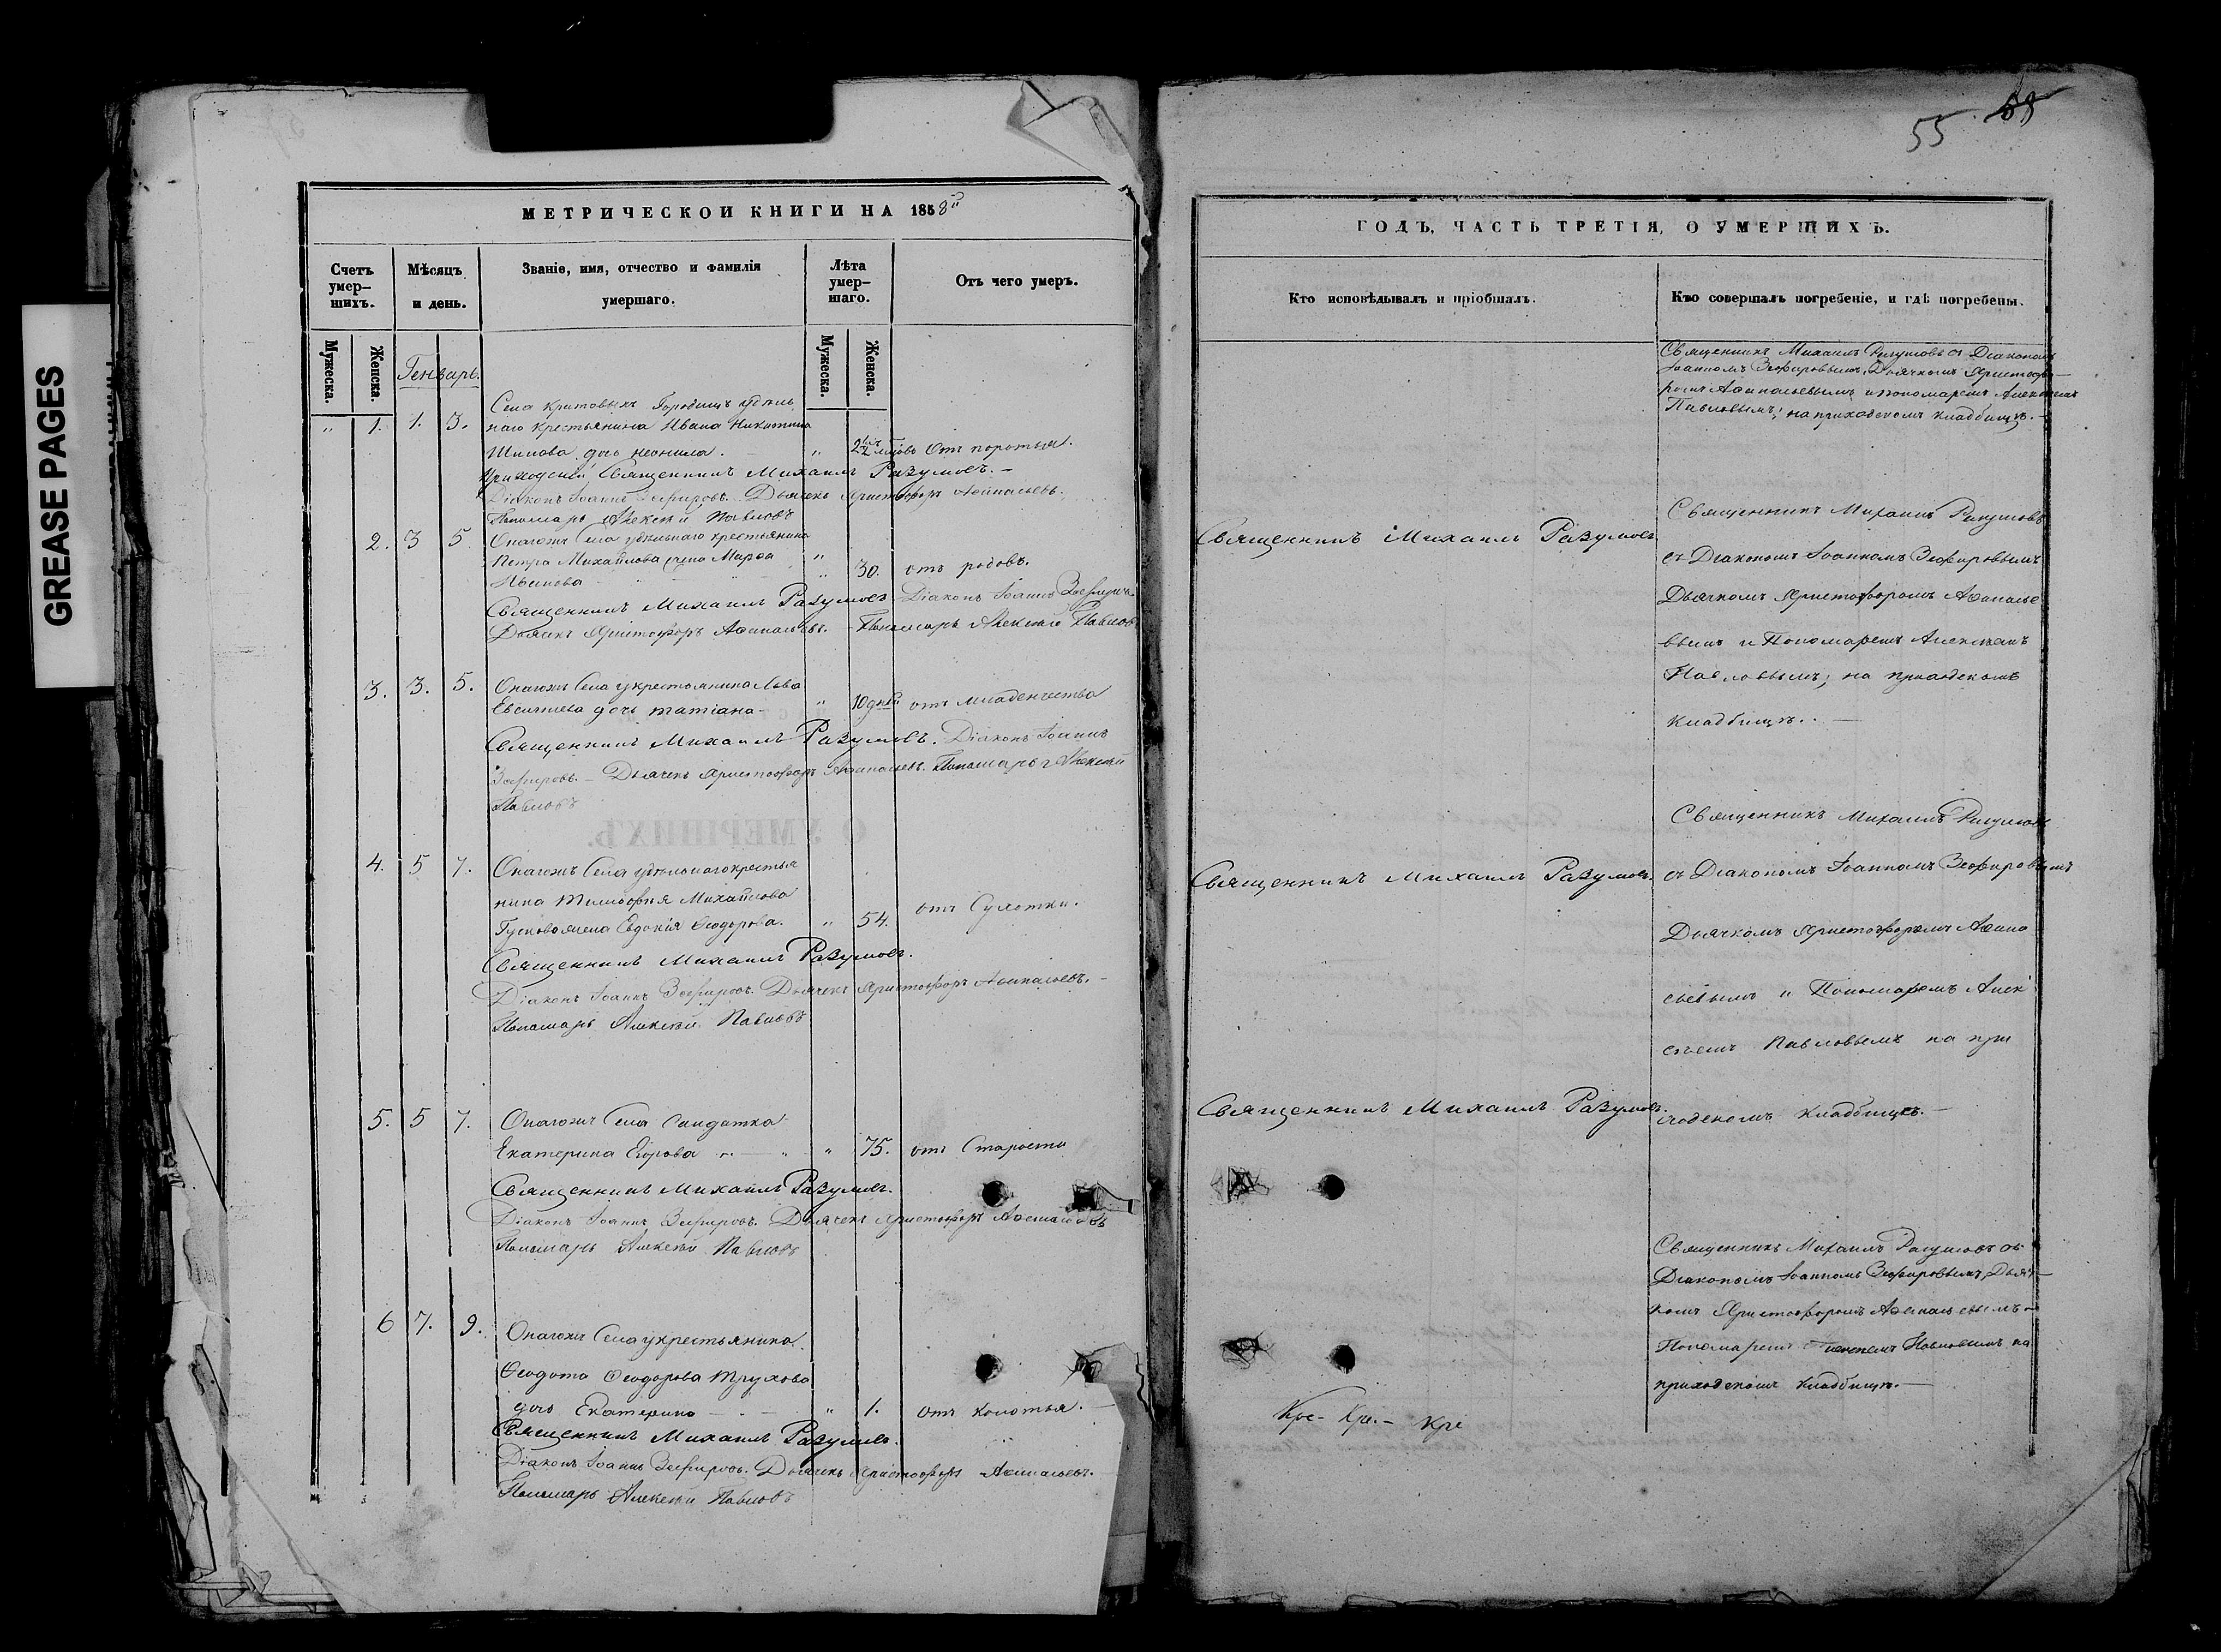 GREASE PAGES
МЕТРИЧЕСКОЙ КНИГИ НА 1858й
Счетъ умер-шихъ.
Мѣсяцъ и день.
Званіе, имя, отчество и фамилія умершаго.
Лѣта умер-шаго.
Отъ чего умеръ.
Мужеска.
Женска.
Генварь.
Мужеска.
Женска.
" 1. 1. 3.
Села Городищъ удѣль
наго крестьянина Ивана Никитина
Шипова дочь Неонила. " 2½ лѣтъ Отъ
Приходскій Священникъ Михаилъ Разумовъ.—
Діаконъ Іоаннъ Зефировъ. Дьячекъ Христофоръ Афанасьевъ.
Пономарь Алексѣй Павловъ
2. 3 5. Онагожъ Села удѣльнаго крестьянина
Петра Михайлова жена Марфа "
Иванова " 30. отъ родовъ.
Священникъ Михаилъ Разумовъ Діаконъ Іоаннъ Зефировъ.
Дьячекъ Христофоръ Афанасьевъ. Пономарь Алексѣй Павловъ
3. 3. 5. Онагожъ Села у крестьянина Льва
дочь Татіана " 10 дней отъ младенчества
Священникъ Михаилъ Разумовъ. Діаконъ Іоаннъ
Зефировъ.— Дьячекъ Христофоръ Афанасьевъ. Пономарь Алексѣй
Павловъ
4. 5 7. Онагожъ Села удѣльнаго крестья
нина Тимофея Михайлова
Гускова жена Евдокія Ѳеодорова. " 54. отъ Сухотки.
Священникъ Михаилъ Разумовъ.
Діаконъ Іоаннъ Зефировъ. Дьячекъ Христофоръ Афанасьевъ.—
Пономарь Алексѣй Павловъ
5. 5 7. Онагожъ Села Салдатка
Екатерина Егорова " 75. отъ Старости
Священникъ Михаилъ Разумовъ.
Діаконъ Іоаннъ Зефировъ. Дьячекъ Христофоръ Афанасьевъ
Пономарь Алексѣй Павловъ
6 7. 9. Онагожъ Села у крестьянина
Ѳеодота Ѳеодорова Трухова
дочь Екатерина " 1. отъ колотья.
Священникъ Михаилъ Разумовъ.
Діаконъ Іоаннъ Зефировъ. Дьячекъ Христофоръ Афанасьевъ.
Пономарь Алексѣй Павловъ
55 58
ГОДЪ, ЧАСТЬ ТРЕТІЯ, О УМЕРШИХЪ.
Кто исповѣдывалъ и пріобщалъ.
Кто совершалъ погребеніе, и гдѣ погребены.
Священникъ Михаилъ Разумовъ съ Діакономъ
Іоанномъ Зефировымъ, Дьячкомъ Христофо—
ромъ Афанасьевымъ и пономаремъ Алексѣемъ
Павловымъ; на приходскомъ кладбищѣ.—
Священникъ Михаилъ Разумовъ
Священникъ Михаилъ Разумовъ
съ Діакономъ Іоанномъ Зефировымъ
Дьячкомъ Христофоромъ Афанасье
вымъ и Пономаремъ Алексѣемъ
Павловымъ; на приходскомъ
кладбищѣ.—
Священникъ Михаилъ Разумовъ
Священникъ Михаилъ Разумовъ.
съ Діакономъ Іоанномъ Зефировымъ
Дьячкомъ Христофоромъ Афана
сьевымъ и Пономаремъ Алек
сѣемъ Павловымъ на при
Священникъ Михаилъ Разумовъ.
ходскомъ кладбищѣ.—
Священникъ Михаилъ Разумовъ съ
Діакономъ Іоанномъ Зефировымъ, Дьяч—
комъ Христофоромъ Афанасьевымъ
Пономаремъ Алексѣемъ Павловымъ на
приходскомъ кладбищѣ.—
Кре- Кре.- кре